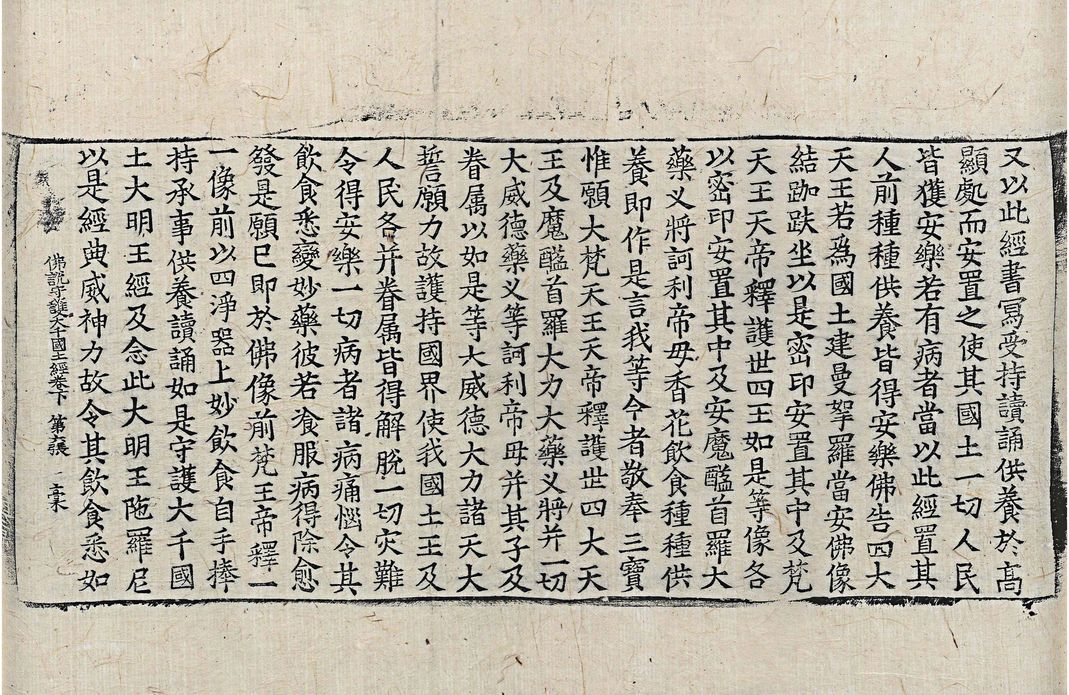 又以此經書寫受持讀誦供養於高
顯處而安置之使其國土一切人民
皆獲安樂若有病者當以此經置其
人前種種供養皆得安樂佛告四大
天王若爲國土建曼拏羅當安佛像
結跏趺坐以是密印安置其中及梵
天王天帝釋護世四王如是等像各
以密印安置其中及安魔醯首羅大
藥义將訶利帝母香花飲食種種供
養即作是言我等今者敬奉三寶
惟願大梵天王天帝釋護世四大天
王及魔醯首羅大力大藥义將并一切
大威德藥义等訶利帝母并其子及
眷属以如是等大威德大力諸天大
誓願力故護持國界使我國土王及
人民各并眷属皆得解脫一切灾難
令得安樂一切病者諸病痛惱令其
飲食悉變妙藥彼若飡服病得除愈
發是願已即於佛像前梵王帝釋一
一像前以四淨器上妙飲食自手捧
持承事供養讀誦如是守護大千國
土大明王經及念此大明王陁羅尼
以是經典威神力故令其飲食悉如
佛說守護大千國土經卷下 第六張